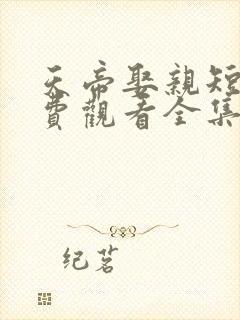 天帝娶親短
費觀看全集
纪茗